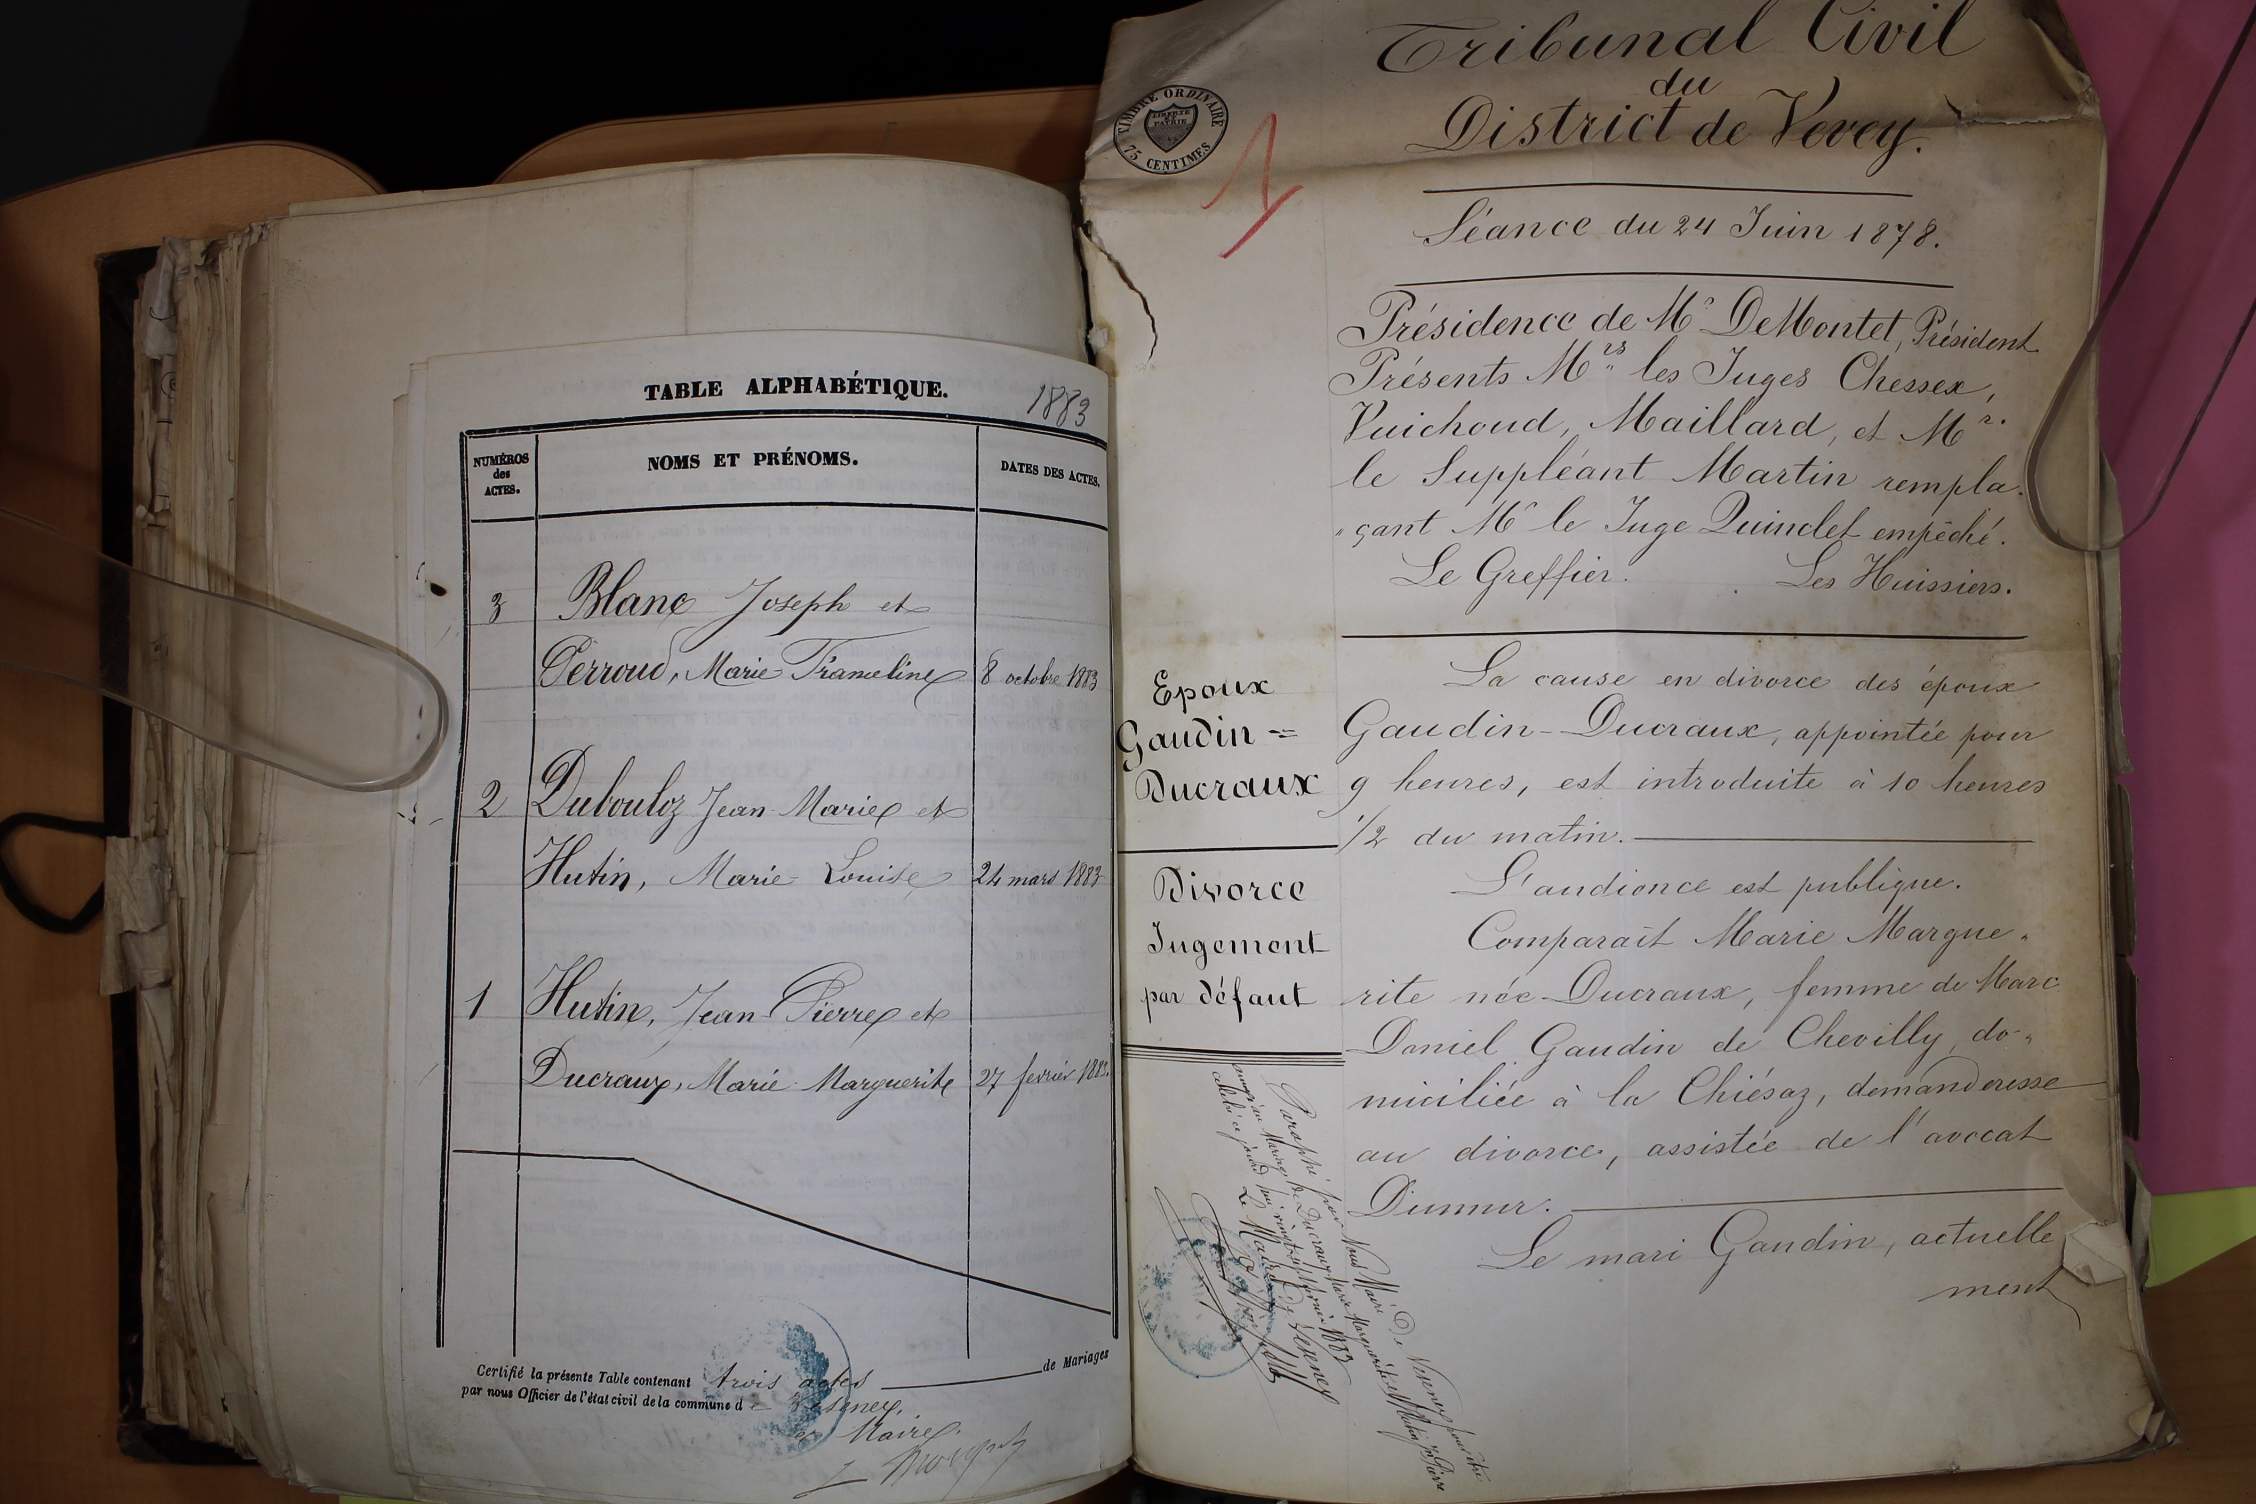 TABLE ALPHABÉTIQUE.
1883
NUMÉROS
des
ACTES.
NOMS ET PRÉNOMS.
DATES DES ACTES.
3 Blanc Joseph et
Perroud, Marie Franceline 8 octobre 1883
2 Dubouloz Jean-Marie et
Hutin, Marie Louise 24 mars 1883
1 Hutin, Jean-Pierre et
Ducraux, Marie Marguerite 27 fevrier 1883.
Certifié la présente Table contenant trois actes de Mariages
par nous Officier de l'état civil de la commune de
Maire
Tribunal Civil
du
District de Vevey.
TIMBRE ORDINAIRE
LIBERTÉ
ET
PATRIE
75 CENTIMES
1
Séance du 24 Juin 1878.
Présidence de Mr DeMontet, Président
Présents Mrs les Juges Chessex,
Vuichoud, Maillard, et Mr.
le Suppléant Martin rempla-
"çant Mr le Juge Quinclet empêché.
Le Greffier. Les Huissiers.
Epoux
Gaudin =
Ducraux
Divorce
Jugement
par défaut
La cause en divorce des époux
Gaudin-Ducraux, appointée pour
9 heures, est introduite à 10 heures
1/2 du matin.
L'audience est publique.
Comparaît Marie Margue-
rite née Ducraux, femme de Marc
Daniel Gaudin de Chevilly, do-
miciliée à la Chiésaz, demanderesse
au divorce, assistée de l'avocat
Dumur.
Le mari Gaudin, actuelle
ment
Paraphé par Nous Maire De Veseney pour être
annexé au Mariage de Ducraux Marie Marguerite et Hutin Jn Pierre
célébré ce jourd'hui vingt sept février 1883
Le Maire De Veseney